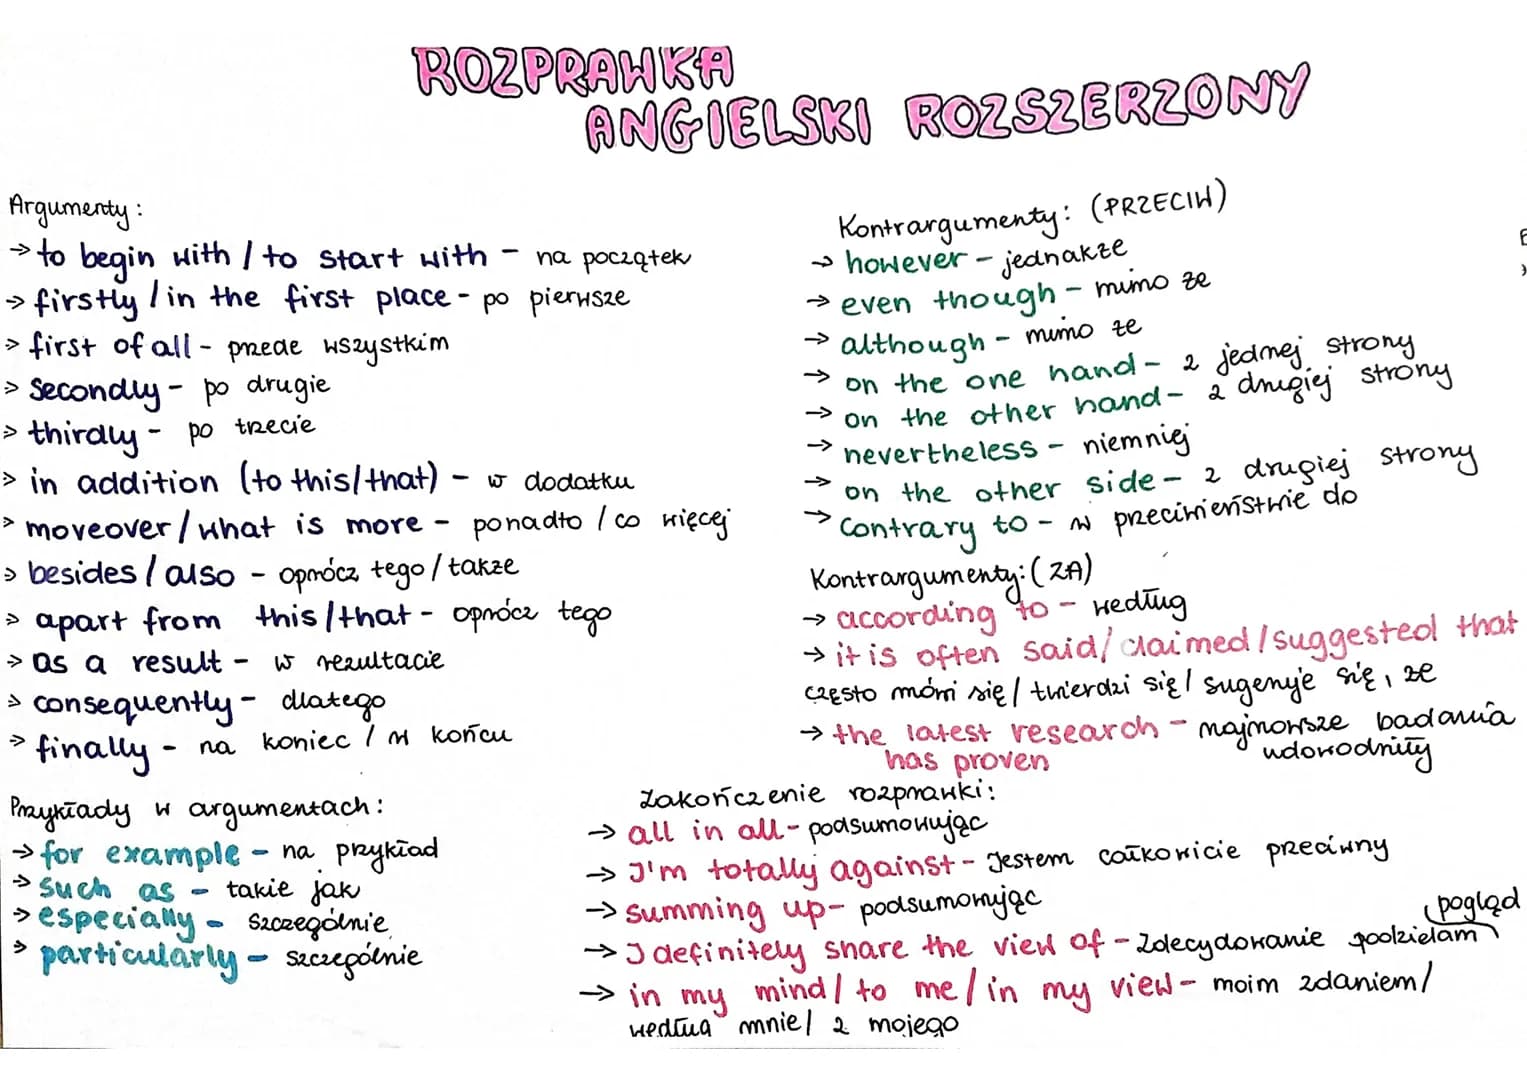 ROZPRAWKA
ANGIELSKI ROZSZERZONY
Argumenty:
→ to begin with / to start with - na początek
→ firstly / in the first place - po pierwsze
→ first of all - przede wszystkim
→ secondly - po drugie
→ thirdly - po trzecie
→ in addition (to this/that) - w dodatku
→ moveover / what is more - ponadto / co więcej
→ besides / also - oprócz tego / także
→ apart from this/that - oprócz tego
→ as a result - w rezultacie
→ consequently - dlatego
→ finally - na koniec / w końcu
Przykłady w argumentach:
→ for example - na przykład
→ such as - takie jak
→ especially - szczególnie
→ particularly - szczególnie
Kontrargumenty: (PRZECIW)
→ however - jednakże
→ even though - mimo że
→ although - mimo że
→ on the one hand - z jednej strony
→ on the other hand - z drugiej strony
→ nevertheless - niemniej
→ on the other side - z drugiej strony
→ contrary to - w przeciwieństwie do
Kontrargumenty: (ZA)
→ according to - według
→ it is often said/claimed/suggested that
często mówi się / twierdzi się / sugeruje się, że
→ the latest research - najnowsze badania
has proven udowodniły
Zakończenie rozprawki:
→ all in all - podsumowując
→ I'm totally against - Jestem całkowicie przeciwny
→ summing up - podsumowując
pogląd
→ I definitely share the view of - Zdecydowanie podzielam
→ in my mind / to me / in my view - moim zdaniem /
według mnie / z mojego